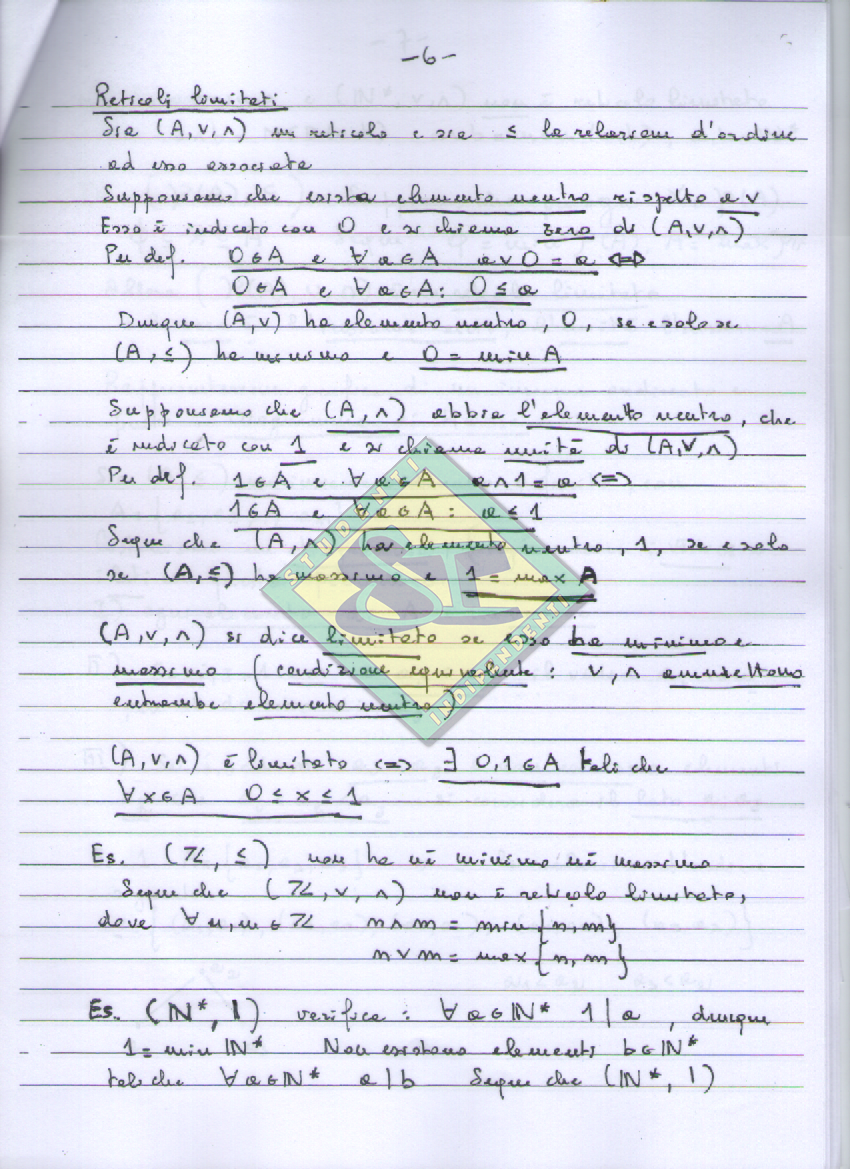 -6-
Reticoli limitati
Sia (A,∨,∧) un reticolo e sia ≤ la relazione d'ordine
ad esso associata
Supponiamo che esista elemento neutro rispetto a ∨
Esso è indicato con 0 e si chiama zero di (A,∨,∧)
Per def. 0∈A e ∀a∈A a∨0=a ⇔
0∈A e ∀a∈A: 0≤a
Dunque (A,∨) ha elemento neutro 0, se e solo se
(A,≤) ha minimo e 0=min A
Supponiamo che (A,∧) abbia l'elemento neutro, che
è indicato con 1 e si chiama unità di (A,∨,∧)
Per def. 1∈A e ∀a∈A a∧1=a <=>
1∈A e ∀a∈A: a≤1
Segue che (A,∧) ha elemento neutro, 1, se e solo
se (A,≤) ha massimo e 1=max A
(A,∨,∧) si dice limitato se esso ha minimo e
massimo (condizione equivalente: ∨,∧ ammettono
entrambe elemento neutro)
(A,∨,∧) è limitato <=> ∃ 0,1∈A tali che
∀x∈A 0≤x≤1
Es. (ℤ,≤) non ha né minimo né massimo
Segue che (ℤ,∨,∧) non è reticolo limitato,
dove ∀n,m∈ℤ n∧m=min{n,m}
n∨m=max{n,m}
Es. (ℕ*,|) verifica: ∀a∈ℕ* 1|a, dunque
1=min ℕ* Non esistono elementi b∈ℕ*
tali che ∀a∈ℕ* a|b Segue che (ℕ*,|)
STUDENTI
SI
INDIPENDENTI